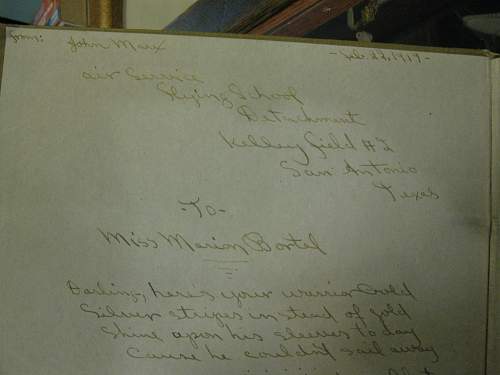 From: John Marx -Feb. 22, 1919-
Air Service
Flying School
Detachment
Kelley Field #2
San Antonio
Texas
-To-
Miss Marion Bortel
Darling, here's your warrior bold
Silver stripes instead of gold
Shine upon his sleeves today
Cause he couldn't sail away